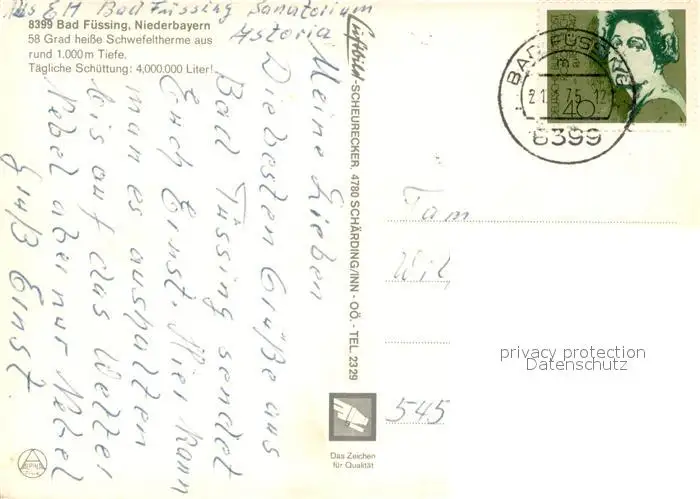 8399 Bad Füssing, Niederbayern
58 Grad heiße Schwefeltherme aus
rund 1.000 m Tiefe.
Tägliche Schüttung: 4,000.000 Liter!
Bad Füssing Sanatorium
Astoria
Meine Lieben
Die besten Grüße aus
Bad Füssing sendet
Euch Ernst. Hier kann
man es aushalten
bis auf das Wetter
Nebel aber nur Nebel
Gruß Ernst
Luftbild-SCHEURECKER, 4780 SCHÄRDING/INN - OÖ. - TEL. 2329
BAD FÜSSING
8399
40
Fam
Wil
545
privacy protection
Datenschutz
Das Zeichen
für Qualität